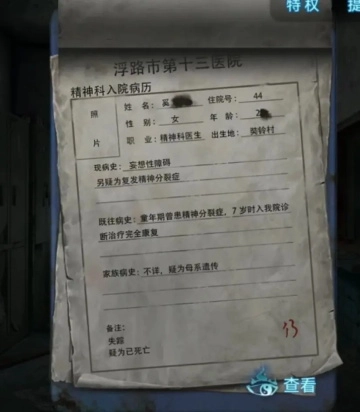 特权
浮路市第十三医院
精神科入院病历
照片
姓名： 住院号： 44
性别： 女 年龄： 2
职业： 精神科医生 出生地： 奘铃村
现病史：妄想性障碍
另疑为复发精神分裂症
既往病史：童年期曾患精神分裂症，7岁时入我院诊
断治疗完全康复
家族病史：不详，疑为母系遗传
备注：
失踪
疑为已死亡
13
查看